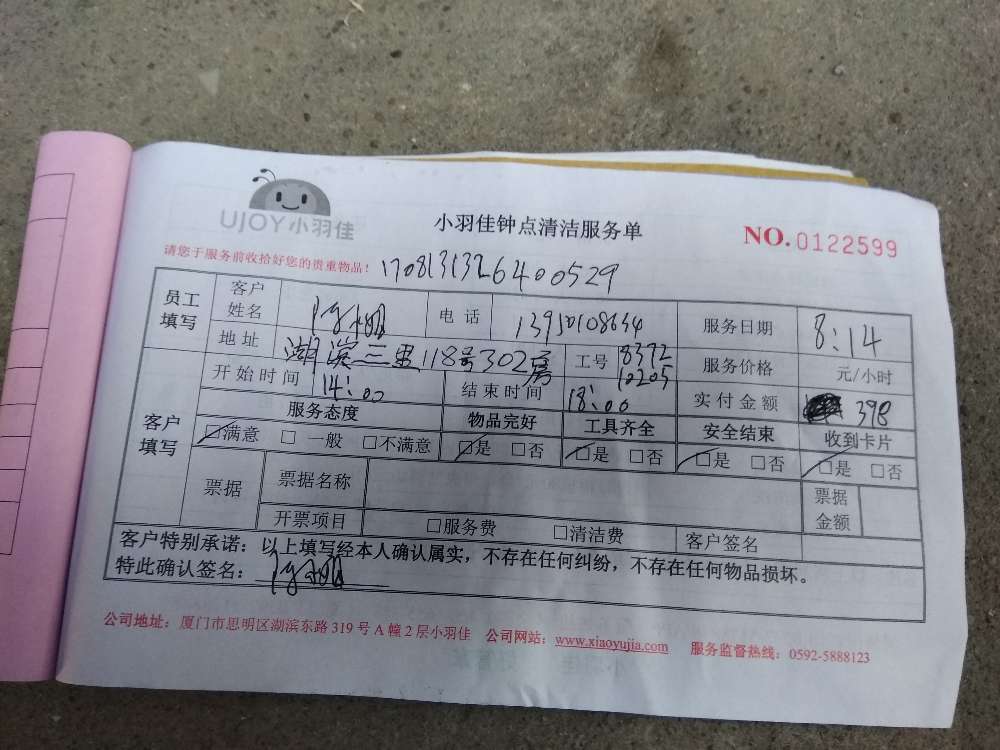 UJOY小羽佳
小羽佳钟点清洁服务单
NO.0122599
请您于服务前收拾好您的贵重物品！
1708131326400529
员工填写 客户姓名 电话 服务日期 8:14
地址 湖滨三里118号302房 工号 8372 10205 服务价格 元/小时
客户填写 开始时间 14:00 结束时间 18:00 实付金额 398
服务态度 物品完好 工具齐全 安全结束 收到卡片
☑满意 □一般 □不满意 ☑是 □否 ☑是 □否 ☑是 □否 ☑是 □否
票据 票据名称 票据金额
开票项目 □服务费 □清洁费 客户签名
客户特别承诺：以上填写经本人确认属实，不存在任何纠纷，不存在任何物品损坏。
特此确认签名：
公司地址：厦门市思明区湖滨东路319号A幢2层小羽佳 公司网站：www.xiaoyujia.com 服务监督热线：0592-5888123